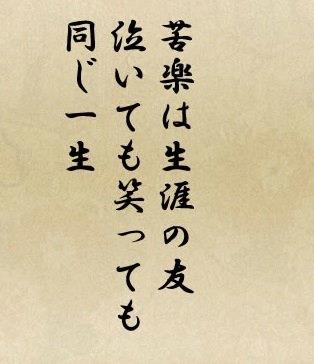 苦楽は生涯の友
泣いても笑っても
同じ一生